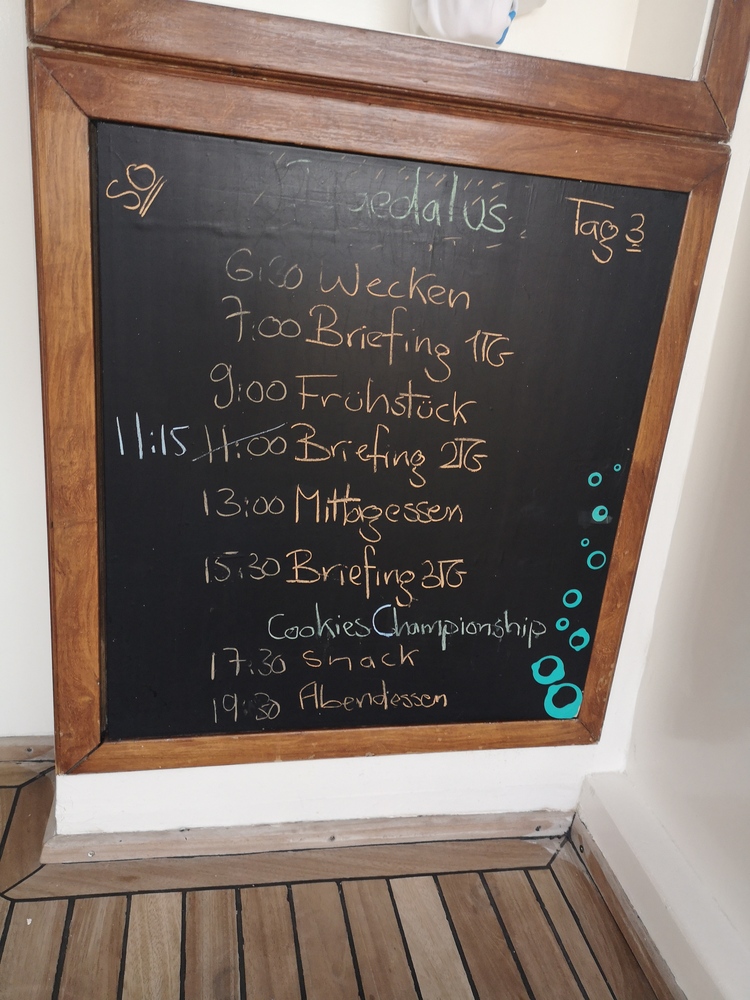 SO
Daedalus
Tag 3
6:30 Wecken
7:00 Briefing 1TG
9:00 Frühstück
11:15 11:00 Briefing 2TG
13:00 Mittagessen
15:30 Briefing 3TG
Cookies Championship
17:30 Snack
19:30 Abendessen